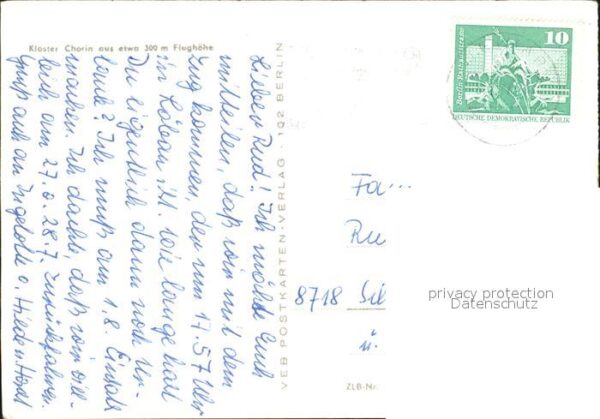 Kloster Chorin aus etwa 300 m Flughöhe
Lieber Rud! Ich möchte Euch
mitteilen, daß wir mit dem
Zug kommen, der um 17.57 Uhr
in Löbau ist. Wie lange hast
Du eigentlich dann noch Ur-
laub? Ich muß am 1.8. Einsatz
machen. Ich dachte, daß wir viel-
leicht am 27. o. 28.7. zurückfahren.
Gruß auch an Ingelotte
VEB POSTKARTEN-VERLAG · 102 BERLIN
10
Berlin, Rathausstraße
DEUTSCHE DEMOKRATISCHE REPUBLIK
Fa...
Ru
8718 
privacy protection
Datenschutz
ü.
ZLB-Nr.